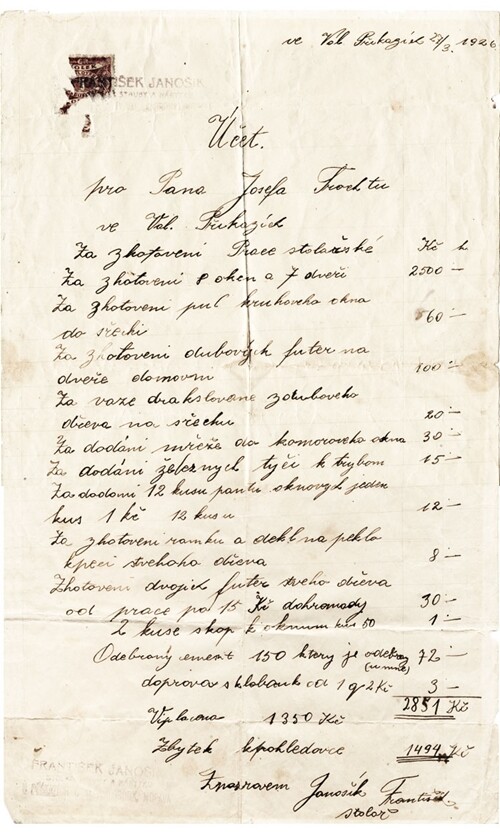 ve Val. Přikazích 27/3. 1926
FRANTIŠEK JANOŠÍK
Účet.
pro Pana Josefa Trochtu
ve Val. Přikazích
Za zhotovení Prace stolařské Kč h
Za zhotoveni 8 oken a 7 dveři 2500 —
Za zhotoveni pul kruhoveho okna
do střechi 60 —
Za zhotoveni dubových futer na
dveře domovni 100 —
Za vaze drakslovane zduboveho
dřeva na střechu 20 —
Za dodáni mřeže do komoroveho okna 30 —
Za dodáni železných tyči k trybom 15 —
Za dodani 12 kusu pantu oknových jeden
kus 1 kč 12 kusu 12 —
Za zhotoveni ramku a dekl na peklo
kpeci stveho dřeva 8 —
Zhotoveni dvojich futer sveho dřeva
od prace po 15 Kč dohromady 30 —
2 kuse skop k oknum kus 50 1 —
Odebraný cement 150 ktery je odebrany 72 —
(umne)
doprava 1 q 2 Kč 3 —
2851 Kč
Vplacena 1350 Kč
Zbytek kpohledavce 1494 Kč
FRANTIŠEK JANOŠÍK
Znazravem Janošík František
stolař